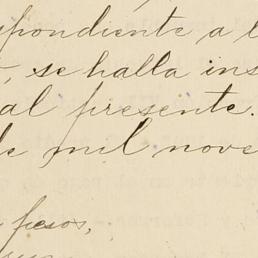 spondiente a l
, se halla ins
al presente.
de mil nove
pesos,